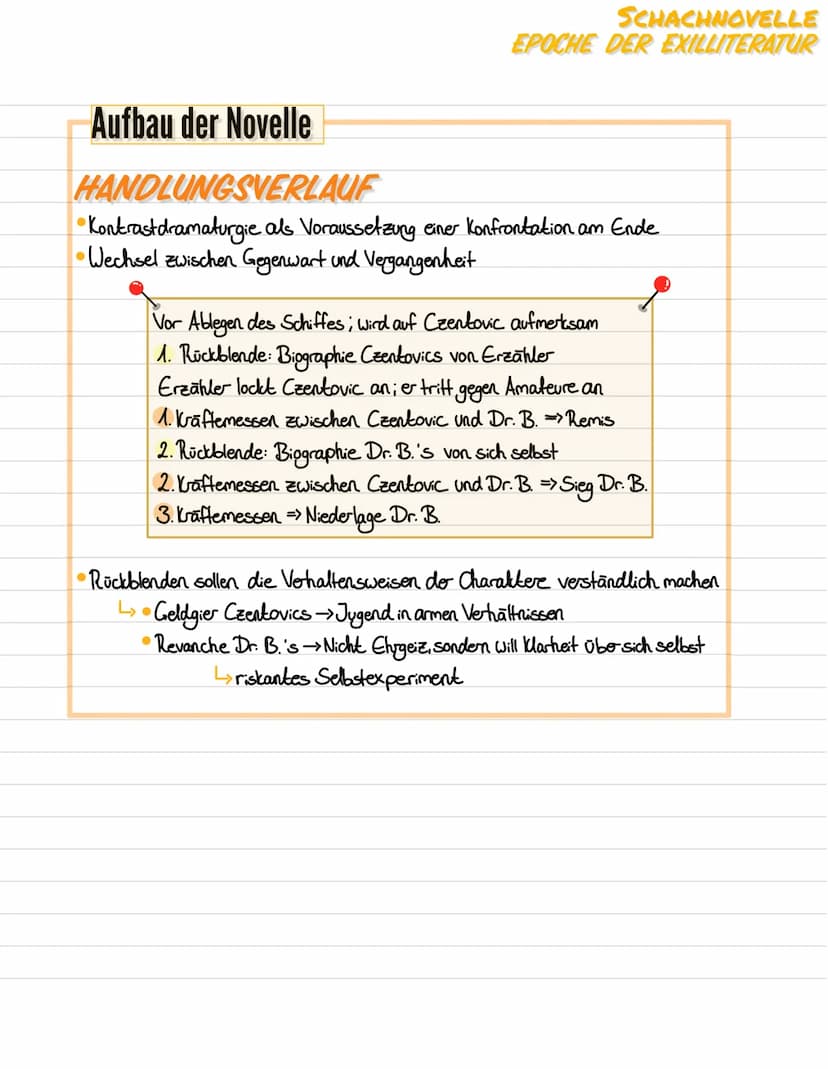 SCHACHNOVELLE
EPOCHE DER EXILLITERATUR
Aufbau der Novelle
HANDLUNGSVERLAUF
• Kontrastdramaturgie als Voraussetzung einer Konfrontation am Ende
• Wechsel zwischen Gegenwart und Vergangenheit
Vor Ablegen des Schiffes; wird auf Czentovic aufmerksam
1. Rückblende: Biographie Czentovics von Erzähler
Erzähler lockt Czentovic an; er tritt gegen Amateure an
1. Kräftemessen zwischen Czentovic und Dr. B. => Remis
2. Rückblende: Biographie Dr. B.'s von sich selbst
2. Kräftemessen zwischen Czentovic und Dr. B. => Sieg Dr. B.
3. Kräftemessen => Niederlage Dr. B.
• Rückblenden sollen die Verhaltensweisen der Charaktere verständlich machen
↳ • Geldgier Czentovics → Jugend in armen Verhältnissen
• Revanche Dr. B.'s → Nicht Ehrgeiz, sondern will Klarheit über sich selbst
↳ riskantes Selbstexperiment